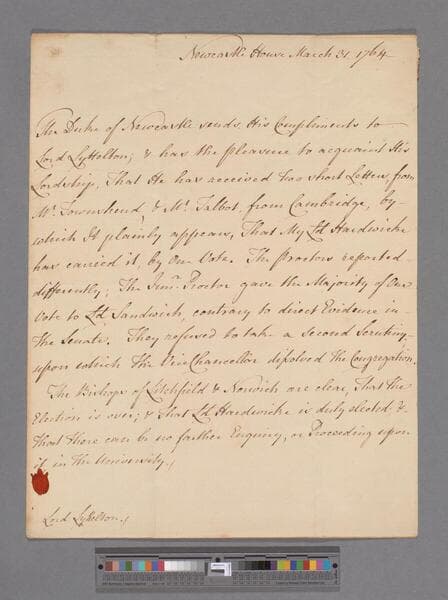 Newcastle House March 31 1764
The Duke of Newcastle sends His Compliments to
Lord Lyttelton; & has the pleasure to acquaint His
Lordship, That He has received two short Letters from
Mr. Townshend, & Mr. Talbot, from Cambridge, by
which It plainly appears, That My Ld Hardwicke
has carried it, by One Vote. The Proctors reported
differently; The Senr. Proctor gave the Majority of One
Vote to Ld Sandwich, contrary to direct Evidence in
the Senate. They refused to take a second Scrutiny
upon which the Vice Chancellor disolved the Congregation.
The Bishops of Litchfield & Norwich are clear, That the
Election is over; & That Ld Hardwicke is duly elected &
That there can be no farther Enquiry, or Proceeding upon
it in the University.
Lord Lyttelton.